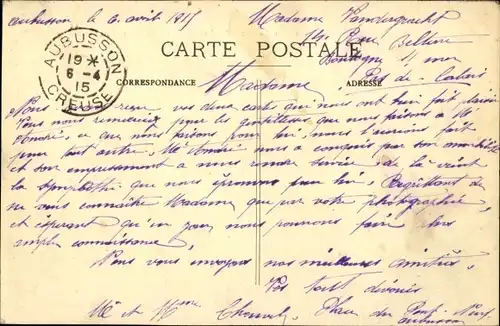 Aubusson le 6 avril 1915
Madame Vandergucht
14 Rue Belten
Boulogne s/ mer
Pas de Calais
CARTE POSTALE
CORRESPONDANCE
ADRESSE
AUBUSSON
19 *
6 - 4
15
CREUSE
Madame
Nous avons reçu vos deux cartes qui nous ont bien fait plaisir
Vous nous remerciez pour les gentillesses que nous faisons à Mr
André, ce que nous faisons pour lui, nous l'aurions fait
pour tout autre. Mr André nous a conquis par son
et son empressement à nous rendre service, de là vient
la sympathie que nous éprouvons pour lui. Regrettant de
ne vous connaître Madame que par votre photographie,
et espérant qu'un jour nous pourrons faire plus
ample connaissance,
Nous vous envoyons nos meilleures amitiés,
Vos tout dévoués
Mr et Mme Place du Pont Neuf
Aubusson